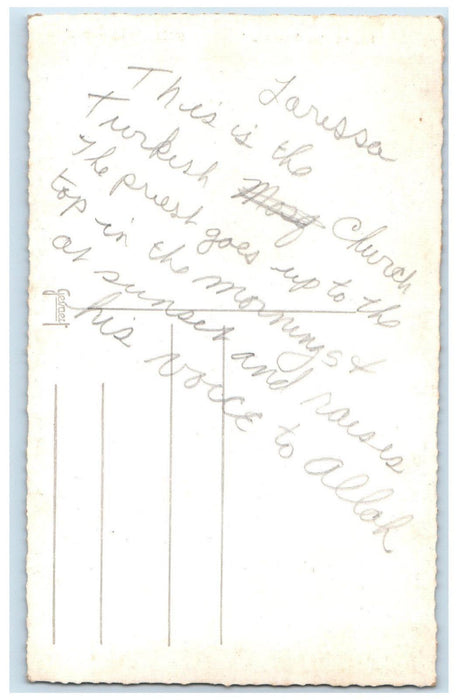 Larissa
This is the
Turkish Mosq Church
The priest goes up to the
top in the mornings &
at sunset and raises
his voice to Allah
Gevaert